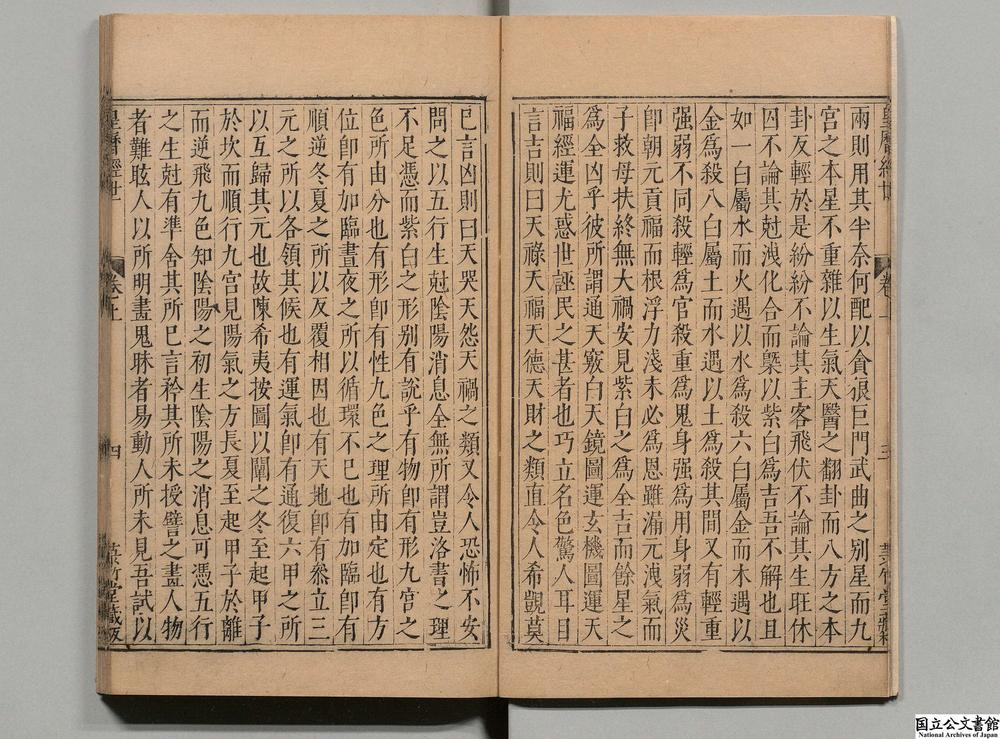 兩則用其半奈何配以貪狼巨門武曲之别星而九
宮之本星不重雜以生氣天醫之翻卦而八方之本
卦反輕於是紛紛不論其主客飛伏不論其生旺休
囚不論其尅洩化合而槩以紫白爲吉吾不解也且
如一白屬水而火遇以水爲殺六白屬金而木遇以
金爲殺八白屬土而水遇以土爲殺其間又有輕重
强弱不同殺輕爲官殺重爲鬼身强爲用身弱爲災
卽朝元貢福而根浮力淺未必爲恩雖漏元洩氣而
子救母扶終無大禍安見紫白之爲全吉而餘星之
爲全凶乎彼所謂通天竅白天鏡圖運玄機圖運天
福經運尤惑世誣民之甚者也巧立名色驚人耳目
言吉則曰天祿天福天德天財之類直令人希覬莫
巳言凶則曰天哭天怨天禍之類又令人恐怖不安
問之以五行生尅陰陽消息全無所謂豈洛書之理
不足憑而紫白之形别有說乎有物卽有形九宮之
色所由分也有形卽有性九色之理所由定也有方
位卽有加臨晝夜之所以循環不已也有加臨卽有
順逆冬夏之所以反覆相因也有天地卽有叅立三
元之所以各領其候也有運氣卽有通復六甲之所
以互歸其元也故陳希夷按圖以闡之冬至起甲子
於坎而順行九宮見陽氣之方長夏至起甲子於離
而逆飛九色知陰陽之初生陰陽之消息可憑五行
之生尅有準舍其所已言矜其所未授譬之畫人物
者難眩人以所明畫鬼眛者易動人所未見吾試以
皇曆經世
卷上
三
皇曆經世
卷上
四
菉竹堂藏板
国立公文書館
National Archives of Japan